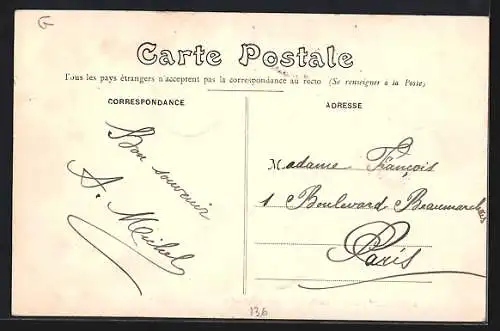 G
Carte Postale
Tous les pays étrangers n'acceptent pas la correspondance au recto (Se renseigner à la Poste)
CORRESPONDANCE
Bon souvenir
A. Michel
ADRESSE
Madame François
1 Boulevard Beaumarchais
Paris
136